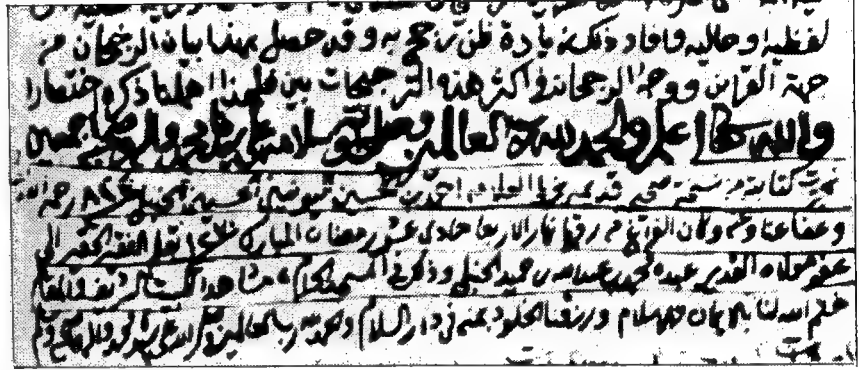 لفظية او حالية وافاد ذلك زيادة ظن رجح به وقد حصل بهذا بيان الرجحان من
جهة القرائن ووجه الرجحان في اكثر هذه الترجيحات بين فلهذا اهملنا ذكره اختصارا
والله تعالى اعلم والحمد لله رب العالمين وصلواته وسلامه على محمد واله وصحبه اجمعين
تمت كتابة من نسخة صحيحة قديمة بخط العلامة احمد بن الحسين رحمه الله
وعفا عنا وعنه وكان الفراغ من رقمها نهار الاربعا حادى عشر رمضان المبارك بقلم الفقير الحقير الى
عفو مولاه القدير عبده محمد بن عبد الله بن حميد الحنبلي وذلك في المسجد الحرام مشاهدا للبيت الشريف والمقام
ختم الله لنا بالايمان والاسلام ورزقنا الخلود بمنه في دار السلام والحمد لله رب العالمين وصلى الله على سيدنا محمد واله وصحبه وسلم
تمت